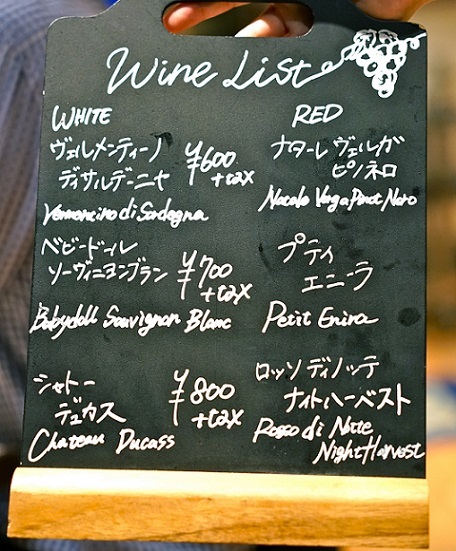 Wine List
WHITE
ヴェルメンティーノ
ディサルデーニャ
¥600
+tax
Vermencino di Sardegna
ベビードール
ソーヴィニヨンブラン
¥700
+tax
Babydoll Sauvignon Blanc
シャトー
デュカス
¥800
+tax
Chateau Ducass
RED
ナターレ ヴェルガ
ピノネロ
Natale Verga Pinot Nero
プティ
エニーラ
Petit Enira
ロッソ ディノッテ
ナイトハーベスト
Rosso di Notte
Night Harvest